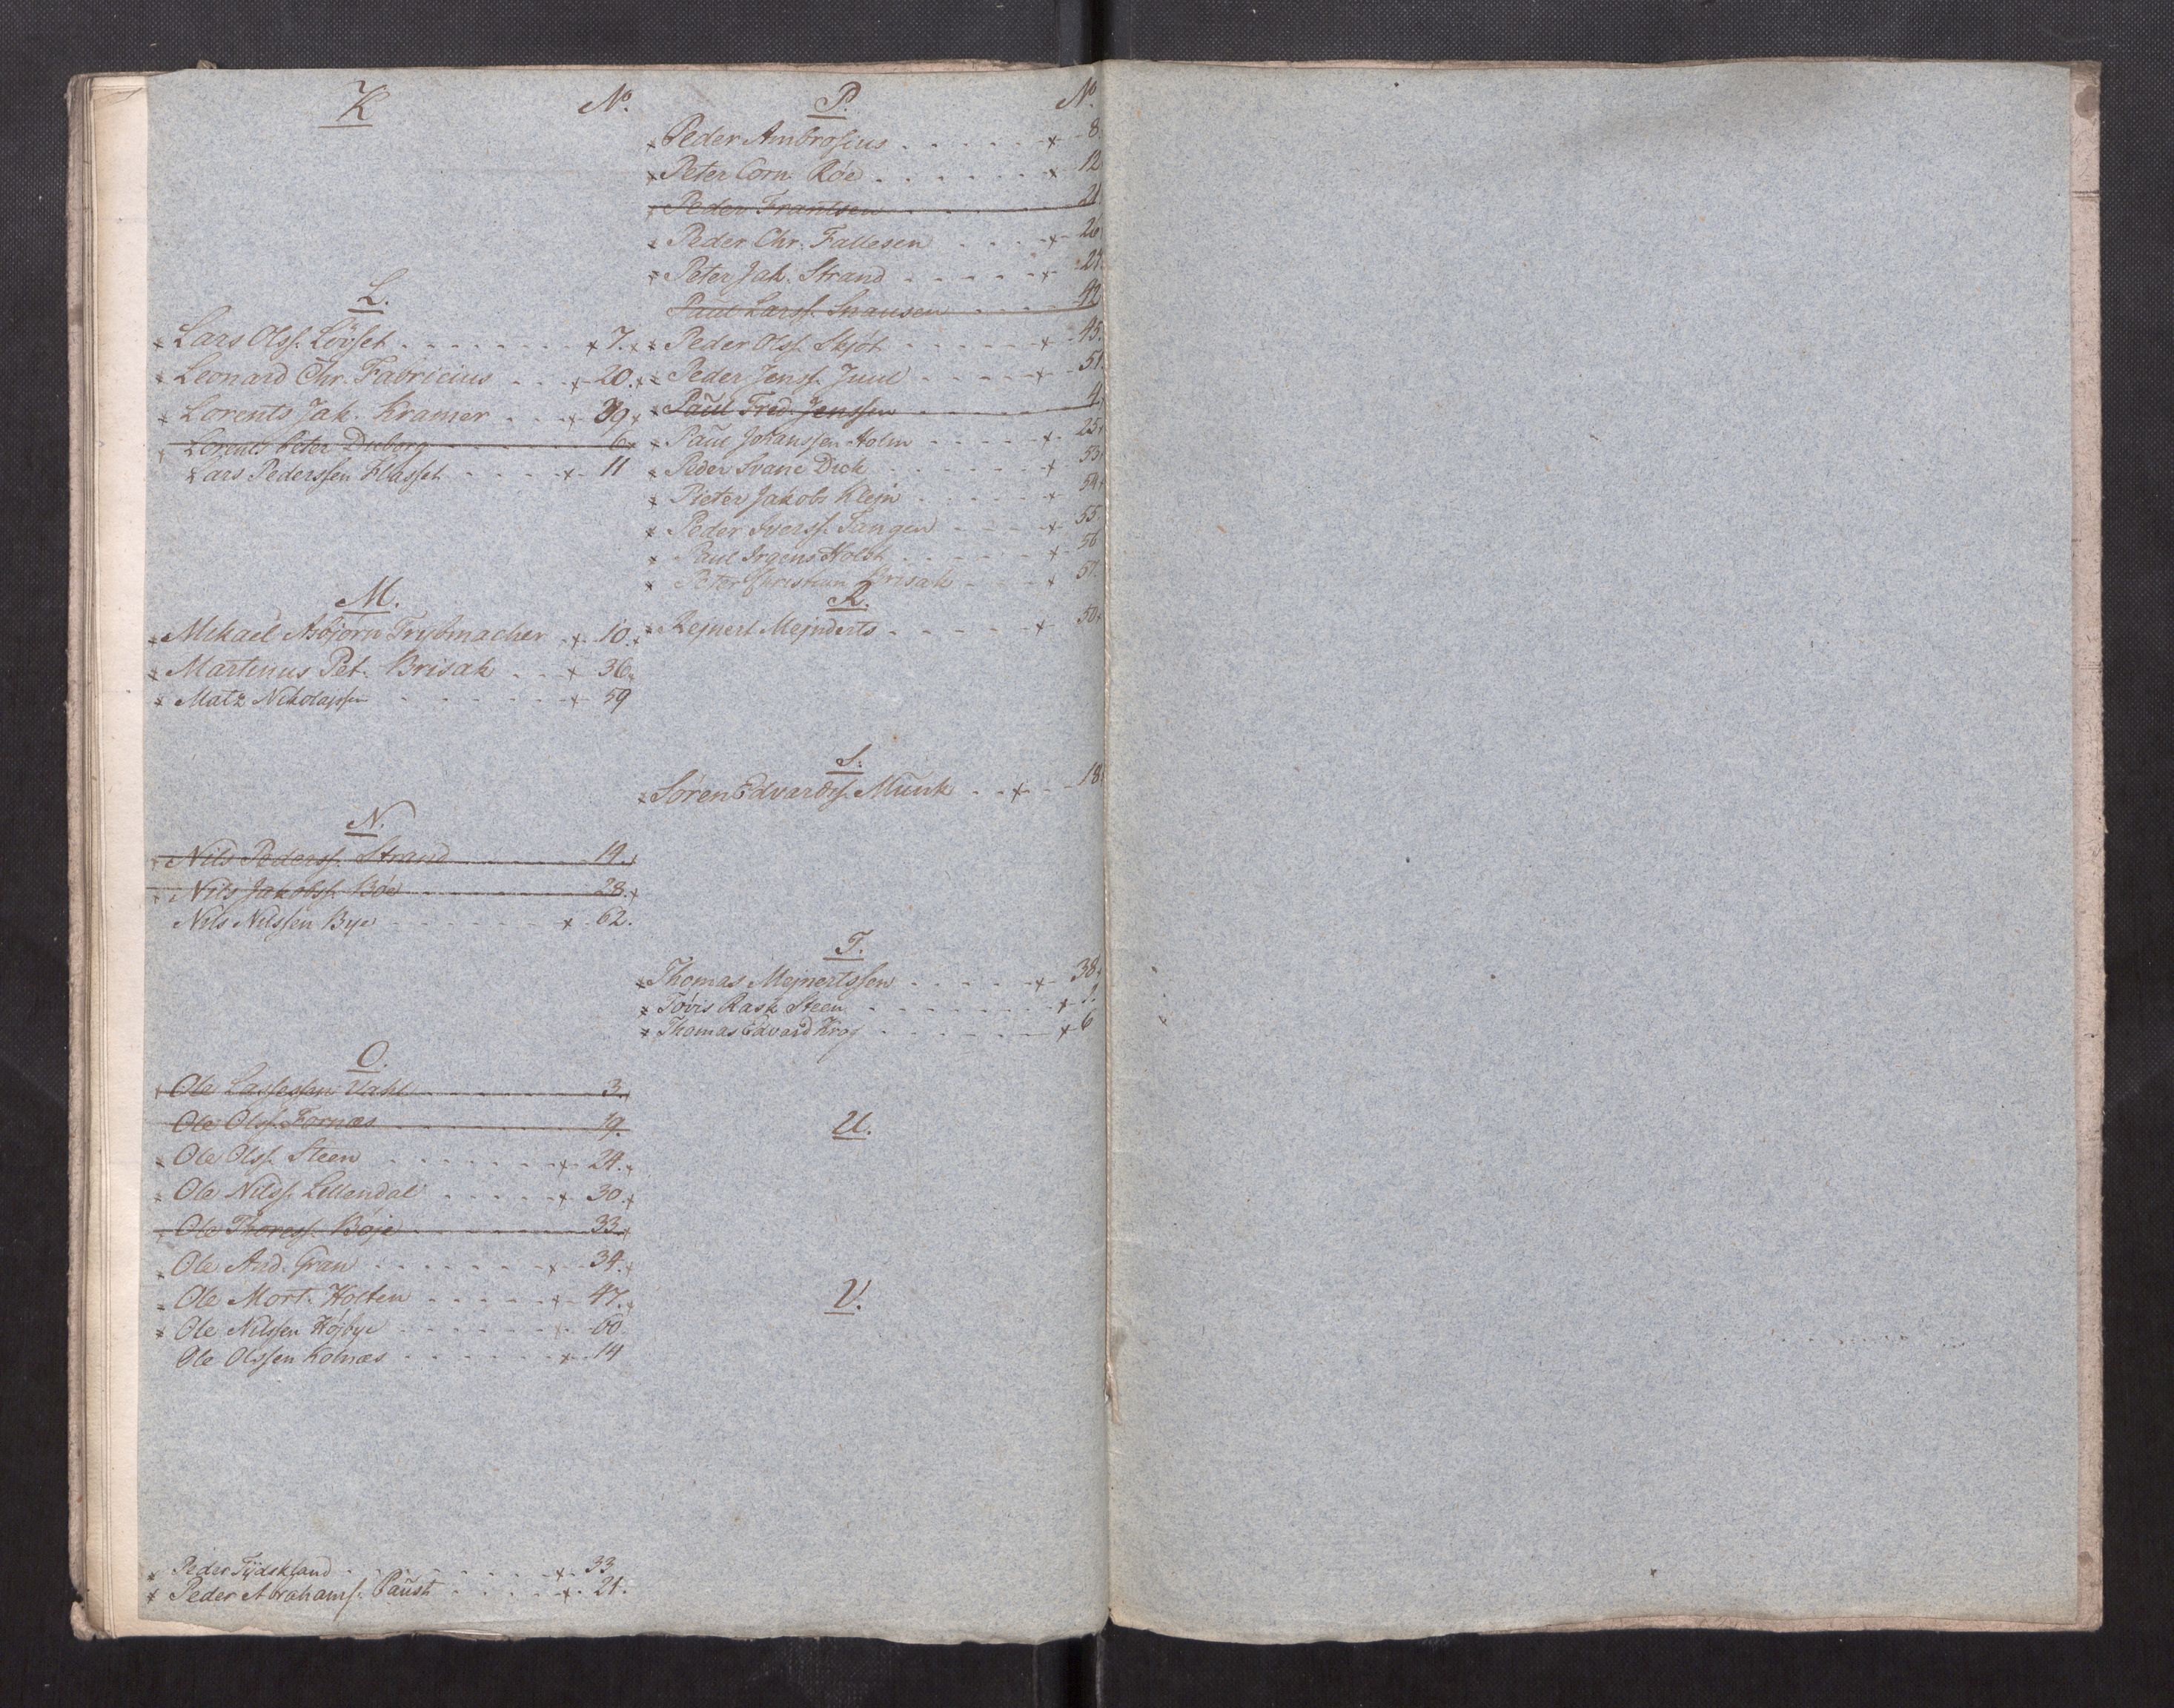 K
No.
L.
Lars Olsf. Löyset 7.
Leonard Chr. Fabricius 20.
Lorents Jak. Kramer 39
Lorents Peter Duborg 6
Lars Pederssen Klasset 11
M.
Mikael Asbjørn Trybmacher 10.
Martinus Pet. Brisak 36.
Matz Nikolajssen 59
N.
Nils Pedersf. Strand 19.
Nils Jakobsf. Böe 28.
Nils Nilssen Bye 62.
O.
Ole Lassessen Vahl 3.
Ole Olsf. Fornæs 19.
Ole Olsf. Steen 24.
Ole Nilsf. Lillendal 30.
Ole Thoresf. Böje 33.
Ole And. Gran 34.
Ole Mort. Holten 47.
Ole Nilssen Höjbye 60
Ole Olssen Kolnæs 14
Peder Tydskland 33
Peder Abrahamsf. Paust 21.
P.
No
Peder Ambrosius 8.
Peter Corn. Röe 12
Peder Frantsen 21
Peder Chr. Fallesen 26
Peter Jak. Strand 27.
Paul Larsf. Snausen 42
Peder Olsf. Skjöt 45.
Peder Jensf. Juul 51.
Paul Fred. Jenssen 4
Paul Johanssen Holm 25
Peder Svane Dick 53
Pieter Jakobs Klejn 54
Peder Iversf. Tangen 55.
Paul Irgens Holst 56
Peter Christian Brisak 57.
R.
Rejnert Mejnderts 50
S.
Søren Edvardsf. Munk 18
T.
Thomas Mejnertssen 38
Tövis Rask Steen
Thomas Edvard Krog 6
U.
V.